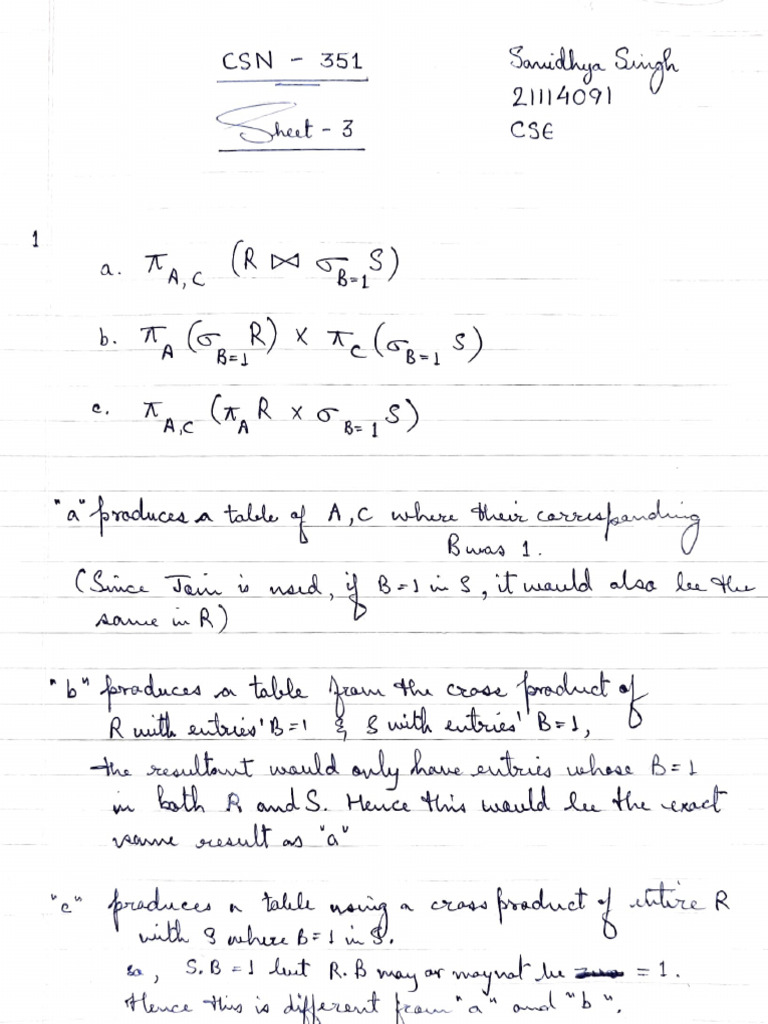 CSN - 351
Sanidhya Singh
21114091
CSE
Sheet - 3
1
a. π A,C (R ⋈ σ B=1 S)
b. π A (σ B=1 R) × π C (σ B=1 S)
c. π A,C (π A R × σ B=1 S)
"a" produces a table of A, C where their corresponding
B was 1.
(Since Join is used, if B=1 in S, it would also be the
same in R)
"b" produces a table from the cross product of
R with entries' B=1 & S with entries' B=1,
the resultant would only have entries whose B=1
in both R and S. Hence this would be the exact
same result as "a"
"c" produces a table using a cross product of entire R
with S where B=1 in S.
so, S.B=1 but R.B may or may not be = 1.
Hence this is different from "a" and "b".